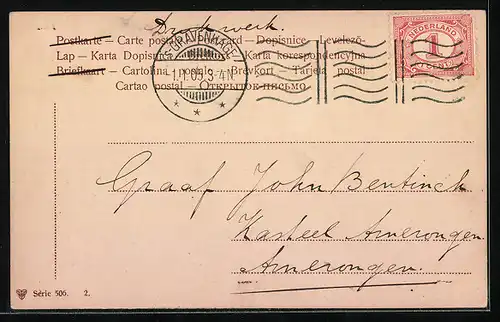 Drukwerk.
Postkarte — Carte postale — Post card — Dopisnice — Levelező-
Lap — Karta Dopisowa — Karta korespondencyjna
Briefkaart — Cartolina postale — Brevkort — Tarjeta postal
Cartao postal — Открытое письмо
'S GRAVENHAGE
NEDERLAND
1
CENT
Graaf John Bentinck
Kasteel Amerongen.
Amerongen.
Série 506. 2.